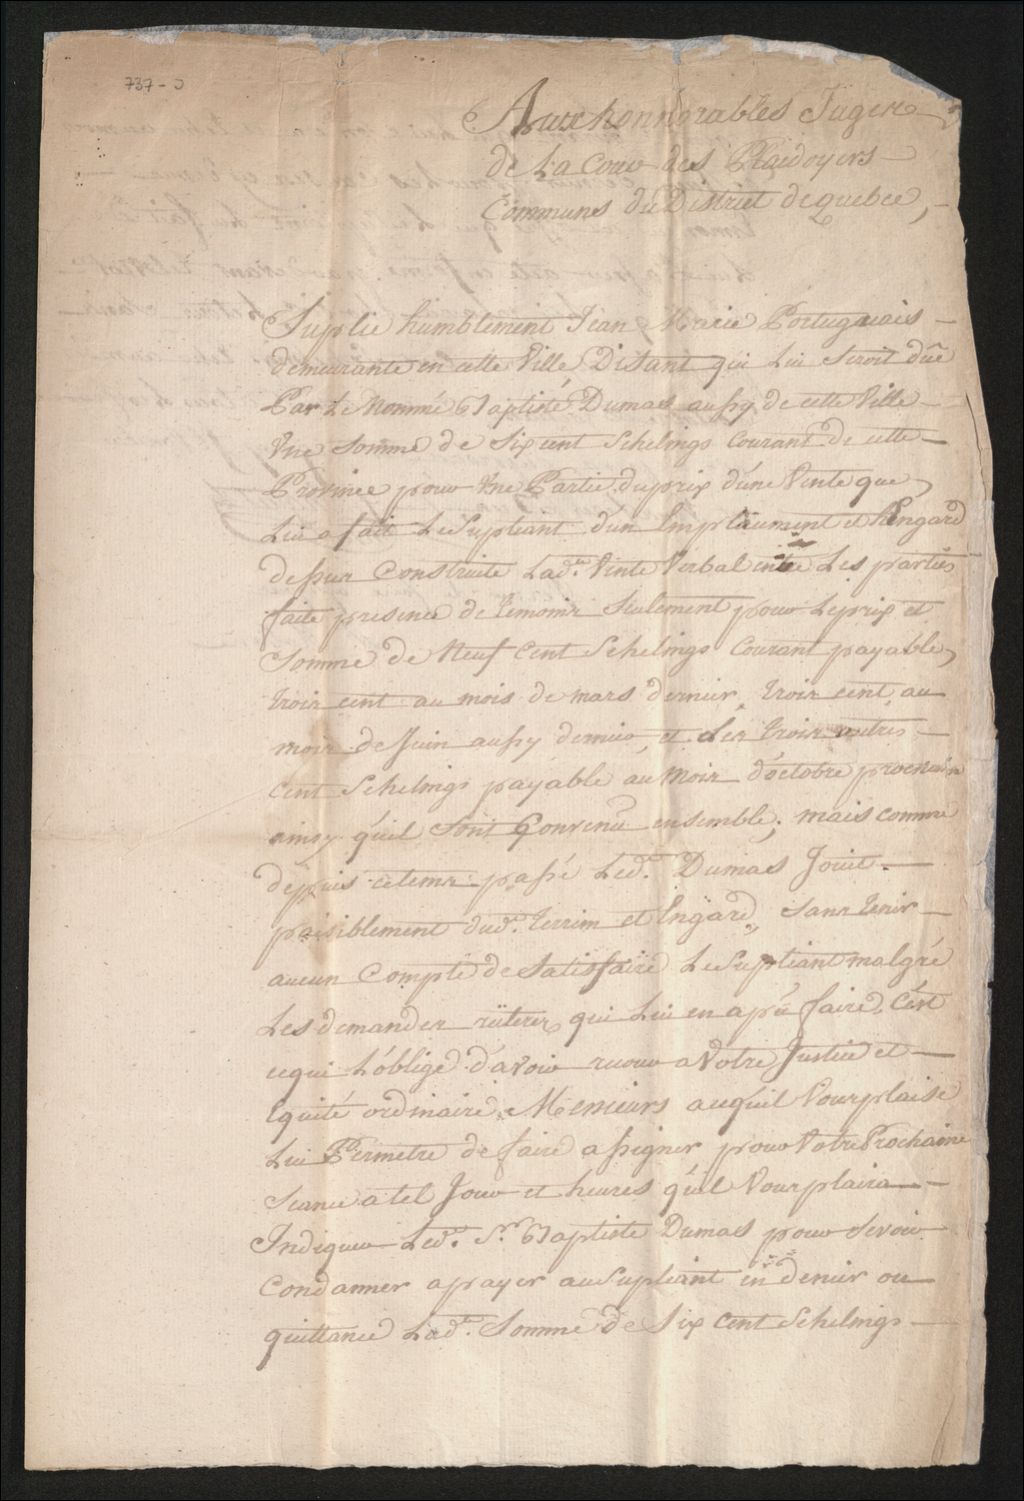 737-J
Aux honnorables Juges
de La Cour des Plaidoyers
Communes du District de quebec,
Suplie humblement Jean Marie Portuguais
demeurante en cette Ville Disant qui Lui Seroit dûe
Par Le Nommé Baptiste Dumas aussy de cette Ville
Une Somme de Six cent Schelings Courant de cette
Province pour Une Partie du prix d'une Vente que
Lui a fait Le Supliant d'un Emplaument et hengard
dessus Construite Lad.te Vente Verbal entre Les parties
faite presence de temoins Seulement pour Le prix et
Somme de Neuf Cent Schelings Courant payable,
trois cent au mois de mars dernier, trois cent au
mois de Juin aussy dernier, et Les trois autres
cent Schelings payable au Mois d'octobre prochain
ainsy qu'il Sont Convenu ensemble; mais comme
depuis ce tems passé Led.t Dumas Jouit
paisiblement dud.t terrim et Engard, Sans tenir
aucun Compte de Satisfaire Le Supliant malgré
Les demandes reiteréz qui Lui en a pû faire, C'est
ce qui L'oblige d'avoir recour a Votre Justice et
Equité ordinaire, Mesieurs a ce qu'il Vous plaise
Lui Permetre de faire assigner pour Votre Prochaine
Seance a tel Jour et heures qu'il Vous plaira
Indiquer Led.t S.r Baptiste Dumas pour Se voir
Condanner a payer au Supliant en denier ou
quittance Lad.te Somme de Six Cent Schelings